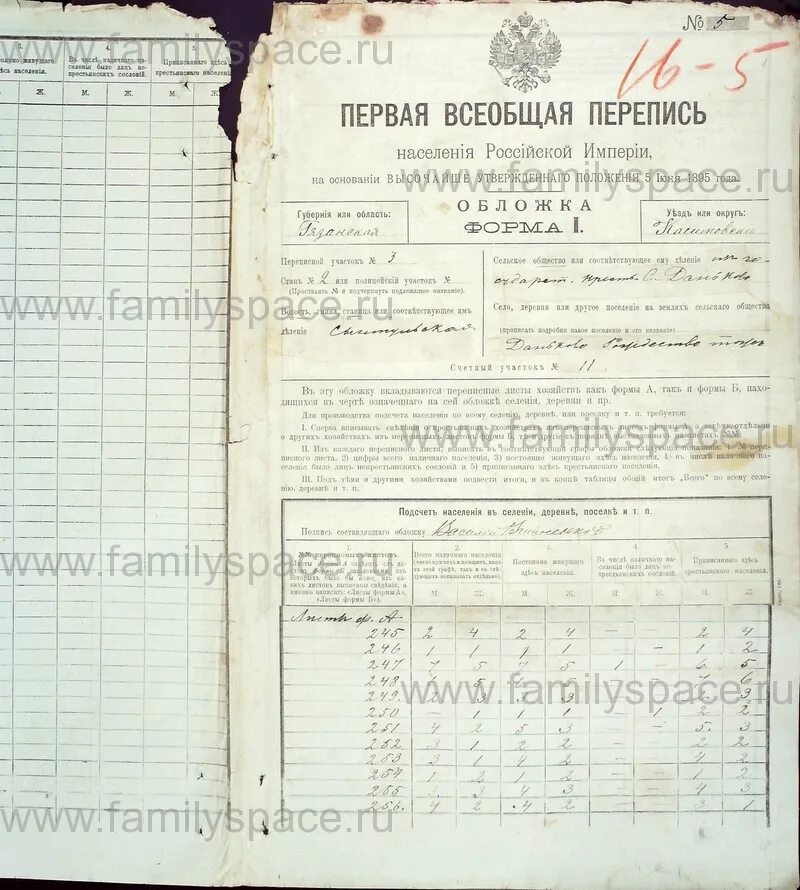 3.
4.
5.
стоянно живущаго
здѣсь населенія.
Въ числѣ наличнаго на-
селенія было лицъ не-
крестьянскихъ сословій.
Приписаннаго здѣсь
крестьянскаго населенія.
Ж.
М.
Ж.
М.
Ж.
№ 5
16-5
ПЕРВАЯ ВСЕОБЩАЯ ПЕРЕПИСЬ
населенія Россійской Имперіи,
на основаніи ВЫСОЧАЙШЕ УТВЕРЖДЕННАГО положенія 5 Іюня 1895 года.
ОБЛОЖКА
ФОРМА I.
Губернія или область:
Рязанская
Уѣздъ или округъ:
Касимовскій
Переписной участокъ № 3
Станъ № 2 или полицейскій участокъ №
(Проставить № и подчеркнуть подлежащее названіе).
Волость, гмина, станица или соотвѣтствующее имъ
дѣленіе Сынтульская
Сельское общество или соотвѣтствующее ему дѣленіе
государст. крест. С. Даньково
Село, деревня или другое поселеніе на земляхъ сельскаго общества
(прописать подробно какое поселеніе и его названіе)
Даньково Рождество тожъ
Счетный участокъ № 11
Въ эту обложку вкладываются переписные листы хозяйствъ какъ формы А, такъ и формы Б, нахо-
дящихся въ чертѣ означеннаго на сей обложкѣ селенія, деревни и пр.
Для производства подсчета населенія по всему селенію, деревнѣ, или поселку и т. п. требуется:
I. Сперва вписывать свѣдѣнія о
хозяйствахъ
отдѣльно
о другихъ хозяйствахъ изъ
II. Изъ каждаго переписного листа выписать въ соотвѣтствующія графы
показанія: 1) № перепис-
ного листа. 2) цифры всего наличнаго населенія, 3) постоянно живущаго здѣсь населенія, 4) въ числѣ наличнаго на-
селенія было лицъ некрестьянскихъ сословій и 5) приписаннаго здѣсь крестьянскаго населенія.
III. Подъ тѣми и другими хозяйствами подвести итоги, и въ концѣ таблицы общій итогъ „Всего“ по всему се-
ленію, деревнѣ и т. п.
Подсчетъ населенія въ селеніи, деревнѣ, поселкѣ и т. п.
Подпись составлявшаго обложку Василій
1. 2. 3. 4. 5.
Всего наличнаго населенія
Постоянно живущаго
здѣсь населенія.
Въ числѣ наличнаго на-
селенія было лицъ не-
крестьянскихъ сословій.
Приписаннаго здѣсь
крестьянскаго населенія.
М. Ж. М. Ж. М. Ж. М. Ж.
Листы ф. А
245 2 4 2 4 — 2 4
246 1 1 1 1 — 1 2
247 7 5 7 5 1 — 6 5
248 6 5 7 5 — — 7 6
249. 2 3 2 3 — 2 3
250 — 1 1 1 — 1 2 2
251 4 2 5 3 — — 5. 3
252 3 1 2 2 — 2 2
253 3 1 4 2 — — 4 2
254 1 2 1 2 — — 1 2
255 3 3 4 3 — — 4 3
256. 4 2 4 2 — — 3 1
www.familyspace.ru
www.familyspace.ru
www.familyspace.ru
www.familyspace.ru
www.familyspace.ru
www.familyspace.ru
www.familyspace.ru
www.familyspace.ru